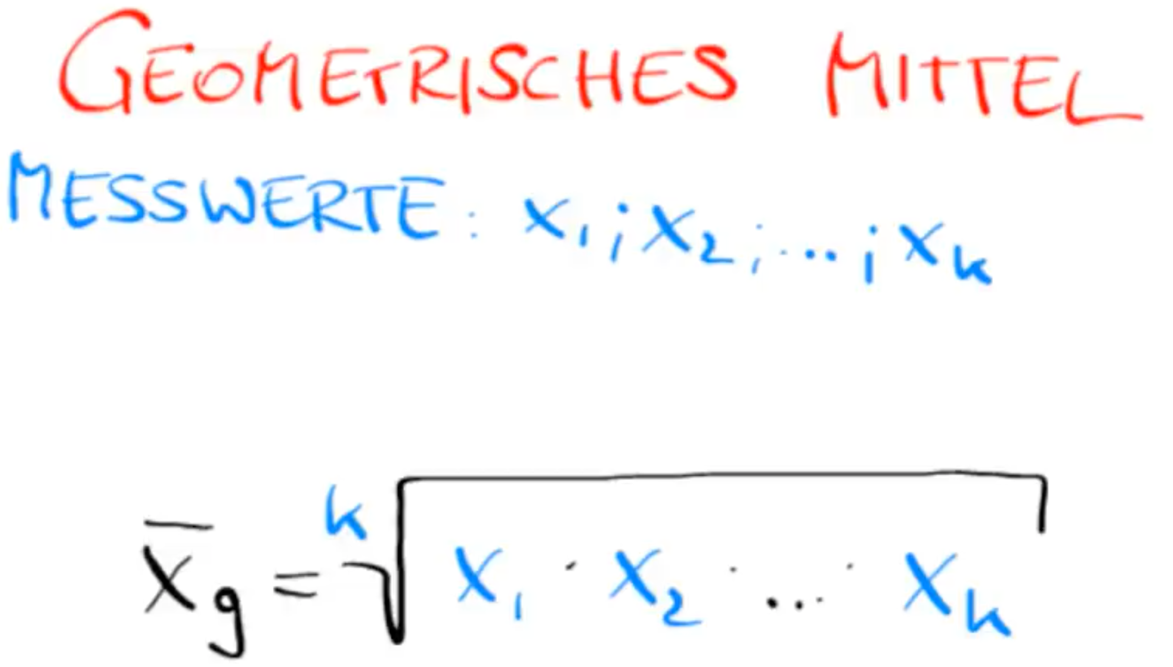 GEOMETRISCHES MITTEL
MESSWERTE: x₁; x₂; ...; xₖ
x̄g = ᵏ√(x₁ · x₂ · ... · xₖ)